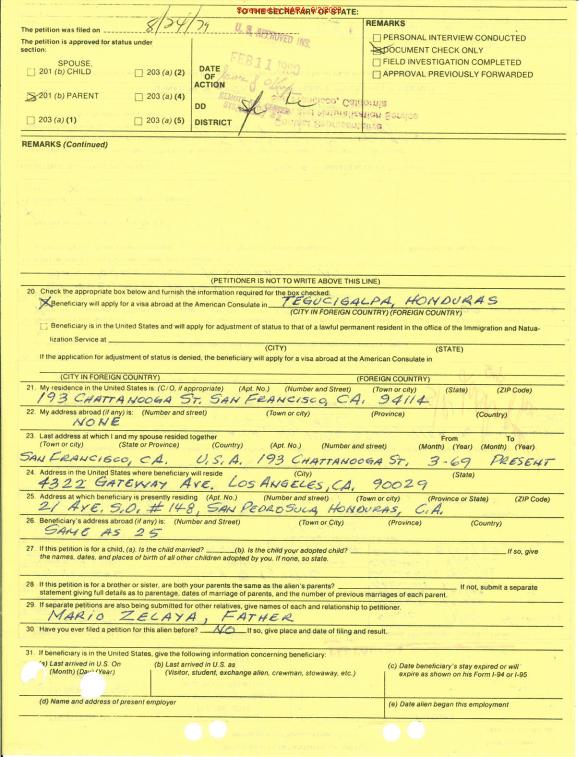 TO THE SECRETARY OF STATE:
The petition was filed on 8/24/79
The petition is approved for status under section:
SPOUSE,
201 (b) CHILD 203 (a) (2)
201 (b) PARENT 203 (a) (4)
203 (a) (1) 203 (a) (5)
U.S. APPROVED INS.
FEB 11 1980
DATE OF ACTION
DD
DISTRICT
REMARKS
PERSONAL INTERVIEW CONDUCTED
DOCUMENT CHECK ONLY
FIELD INVESTIGATION COMPLETED
APPROVAL PREVIOUSLY FORWARDED
REMARKS (Continued)
(PETITIONER IS NOT TO WRITE ABOVE THIS LINE)
20. Check the appropriate box below and furnish the information required for the box checked:
X Beneficiary will apply for a visa abroad at the American Consulate in TEGUCIGALPA, HONDURAS
(CITY IN FOREIGN COUNTRY) (FOREIGN COUNTRY)
Beneficiary is in the United States and will apply for adjustment of status to that of a lawful permanent resident in the office of the Immigration and Natua-
lization Service at
(CITY) (STATE)
If the application for adjustment of status is denied, the beneficiary will apply for a visa abroad at the American Consulate in
(CITY IN FOREIGN COUNTRY) (FOREIGN COUNTRY)
21. My residence in the United States is: (C/O, if appropriate) (Apt. No.) (Number and street) (Town or city) (State) (ZIP Code)
193 CHATTANOOGA ST. SAN FRANCISCO, CA. 94114
22. My address abroad (if any) is: (Number and street) (Town or city) (Province) (Country)
NONE
23. Last address at which I and my spouse resided together From To
(Town or city) (State or Province) (Country) (Apt. No.) (Number and street) (Month) (Year) (Month) (Year)
SAN FRANCISCO, CA. U.S.A. 193 CHATTANOOGA ST, 3-69 PRESENT
24. Address in the United States where beneficiary will reside (City) (State)
4322 GATEWAY AVE. LOS ANGELES, CA. 90029
25. Address at which beneficiary is presently residing (Apt. No.) (Number and street) (Town or city) (Province or State) (ZIP Code)
21 AVE. S.O. #148, SAN PEDRO SULA, HONDURAS, C.A.
26. Beneficiary's address abroad (if any) is: (Number and Street) (Town or City) (Province) (Country)
SAME AS 25
27. If this petition is for a child, (a). Is the child married? (b). Is the child your adopted child? If so, give
the names, dates, and places of birth of all other children adopted by you. If none, so state.
28. If this petition is for a brother or sister, are both your parents the same as the alien's parents? If not, submit a separate
statement giving full details as to parentage, dates of marriage of parents, and the number of previous marriages of each parent.
29. If separate petitions are also being submitted for other relatives, give names of each and relationship to petitioner.
MARIO ZELAYA, FATHER
30. Have you ever filed a petition for this alien before? NO If so, give place and date of filing and result.
31. If beneficiary is in the United States, give the following information concerning beneficiary:
(a) Last arrived in U.S. On (Month) (Day) (Year)
(b) Last arrived in U.S. as (Visitor, student, exchange alien, crewman, stowaway, etc.)
(c) Date beneficiary's stay expired or will expire as shown on his Form I-94 or I-95
(d) Name and address of present employer
(e) Date alien began this employment